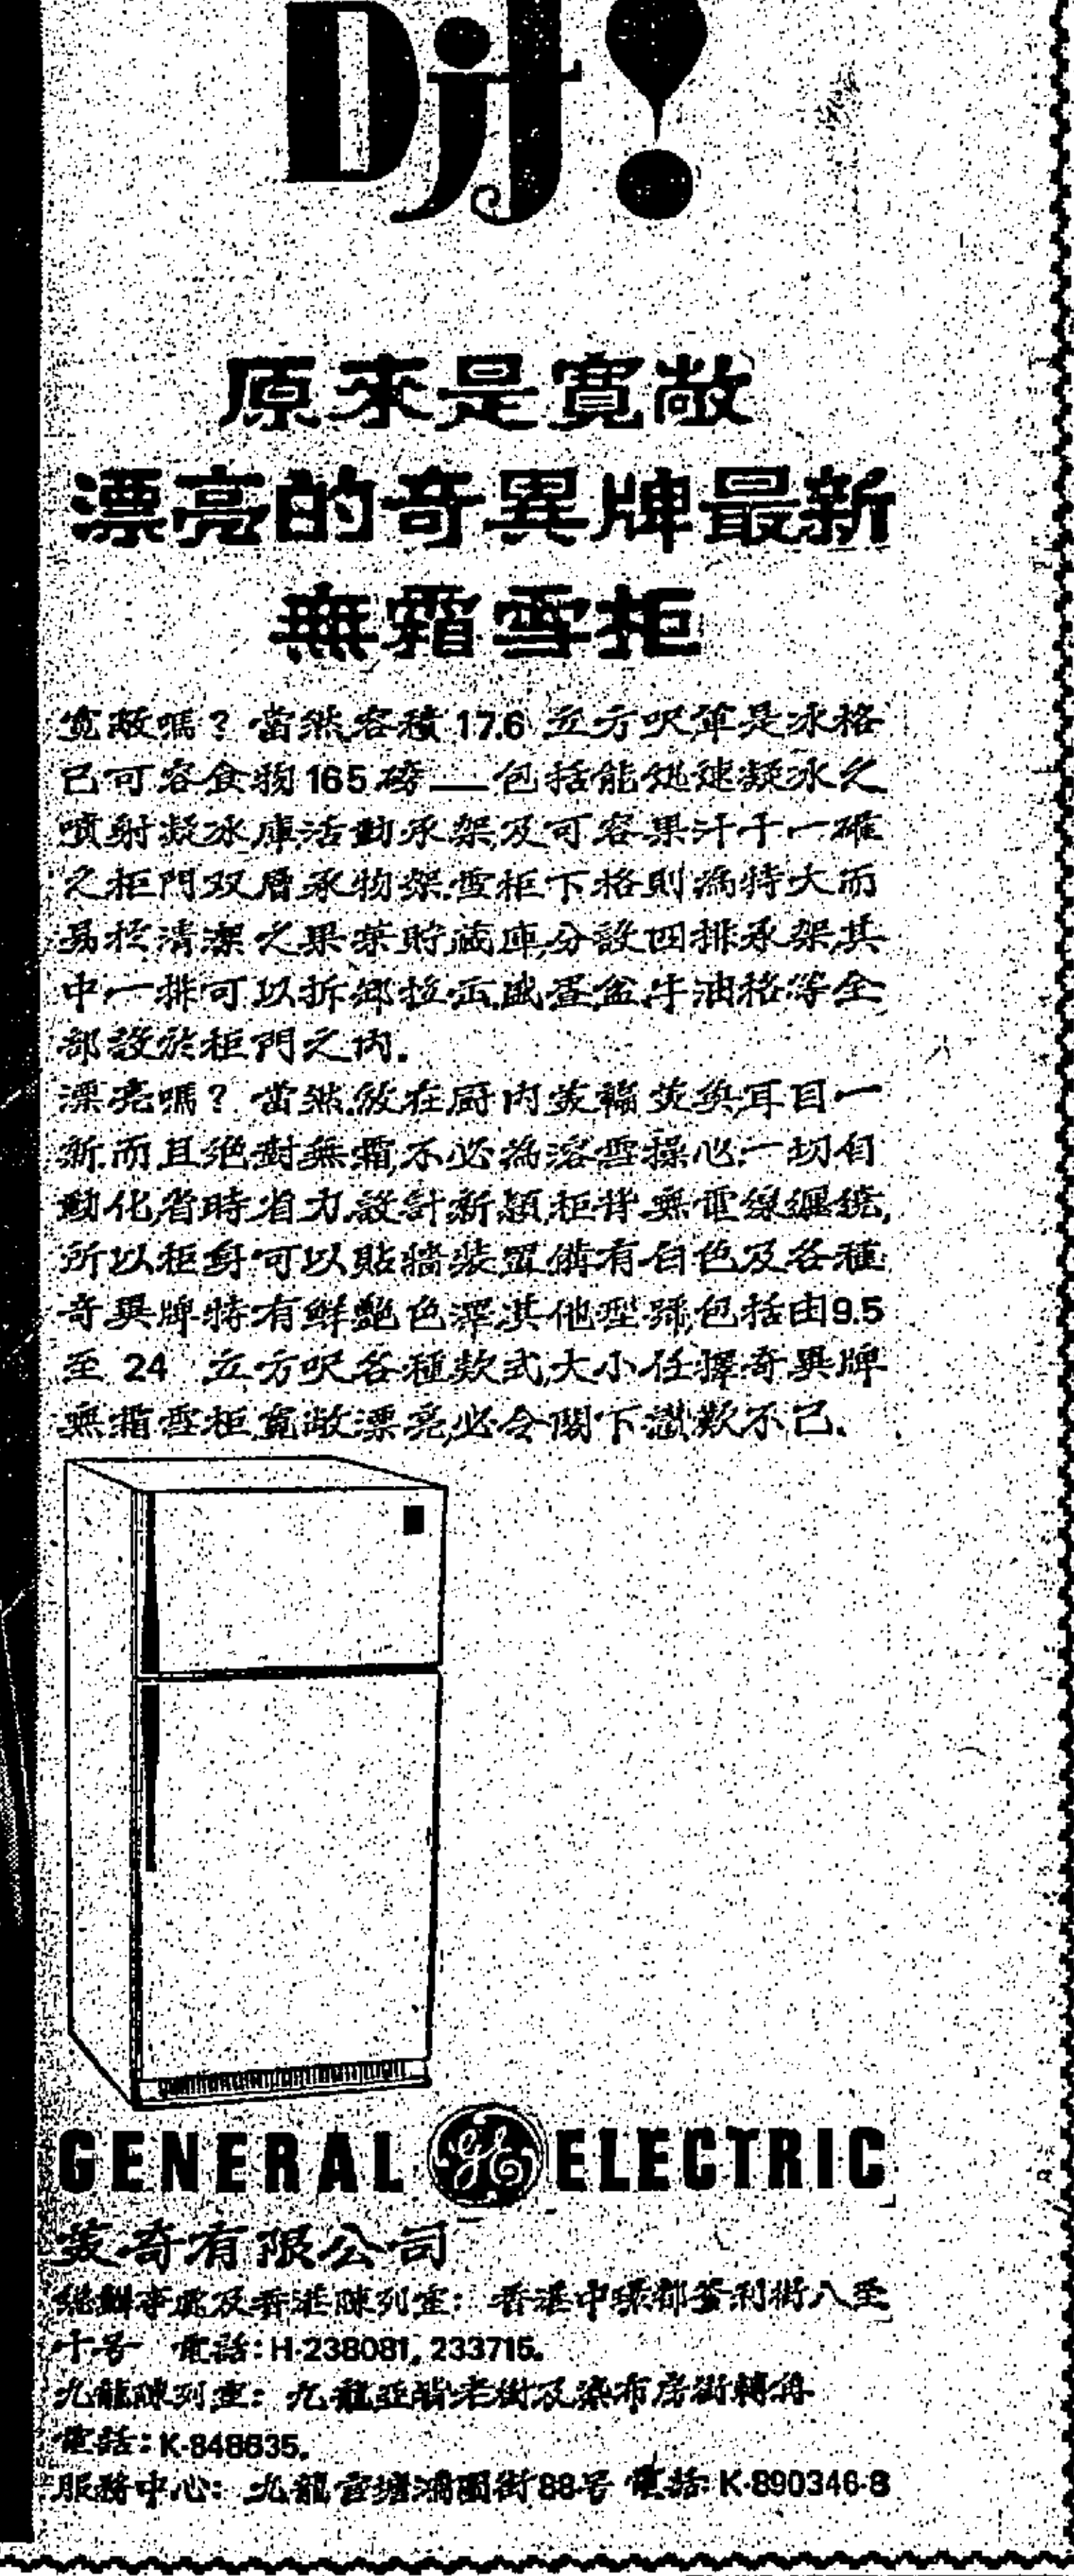 原來是寬敞
漂亮的奇異牌最新
無霜雪柜
寬敞嗎？當然,容積 17.6 立方呎,單是冰格
已可容食物165磅——包括能夠速凝冰之
噴射凝冰庫,活動承架,及可容果汁十一罐
之柜門双層承物架.雪柜下格則為特大而
易於清潔之果菜貯藏庫,分設四排承架,其
中一排可以拆卸拉出,盛蛋盆,牛油格等全
部設於柜門之內.
漂亮嗎？當然.放在厨內美輪美奐,耳目一
新.而且絶對無霜,不必為溶雪操心.一切自
動化,省時省力.設計新穎,柜背無電線纏繞,
所以柜身可以貼牆裝置.備有白色及各種
奇異牌特有鮮艶色澤.其他型號,包括由9.5
至 24 立方呎各種款式,大小任擇.奇異牌
無霜雪柜,寬敞漂亮,必令閣下讃歎不已.
GENERAL GE ELECTRIC
美奇有限公司
總辦事處及香港陳列室：香港中環都爹利街八至
十号 電話：H-238081, 233715.
九龍陳列室：九龍亞皆老街及染布房街轉角
電話：K-848635.
服務中心：九龍官塘鴻圖街88号 電話：K-890346-8